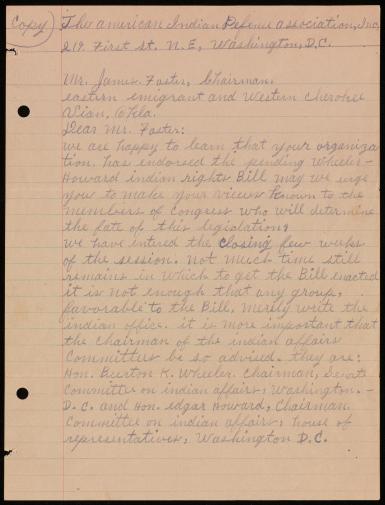 Copy
The american Indian Defense association, Inc,
219. First st. N.E, Washington, D.C.
Mr. James. Foster, Chairman.
eastern emigrant and Western Cherokee
Vian, Okla.
Dear Mr. Foster:
we are happy to learn that your organiza
tion. has endorsed the pending Wheeler-
Howard indian rights Bill may we urge
you to make your views known to the
members of Congress who will determine
the fate of this legislation,
we have intered the closing few weeks
of the session. not much time still
remains in which to get the Bill enacted
it is not enough that any group,
favorable to the Bill, merely write the
indian office. it is more important that
the Chairman of the indian affairs
Committees be so advised. they are:
Hon. Burton K. Wheeler. Chairman, Senate
Committee on indian affairs, Washington. -
D. C. and Hon. edgar Howard, Chairman.
Committee on indian affairs, house of
representatives, Washington D.C.